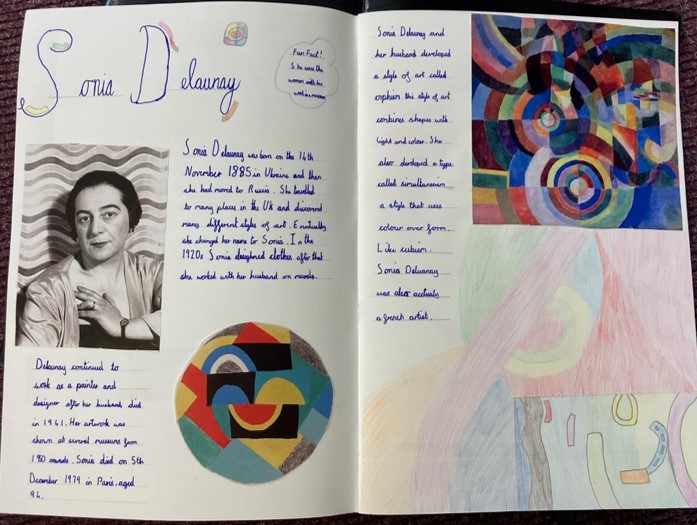 Sonia Delaunay
Fun Fact!
Sonia Delaunay was born on the 14th
November 1885 in Ukraine and then
she had moved to Russia. She travelled
to many places in the Uk and discovered
many different styles of art. Eventually
she changed her name to Sonia. In the
1920s Sonia designed clothes after that
she worked with her husband on murals.
Delaunay continued to
work as a painter and
designer after her husband died
in 1941. Her artwork was
shown at several museums from
1950 onwards. Sonia died on 5th
December 1979 in Paris, aged
94.
Sonia Delaunay and
her husband developed
a style of art called
orphism this style of art
combines shapes with
light and colour. She
also developed a type
called simultaneism
a style that uses
colour over form.
Like cubism.
Sonia Delaunay
was also actually
a french artist.